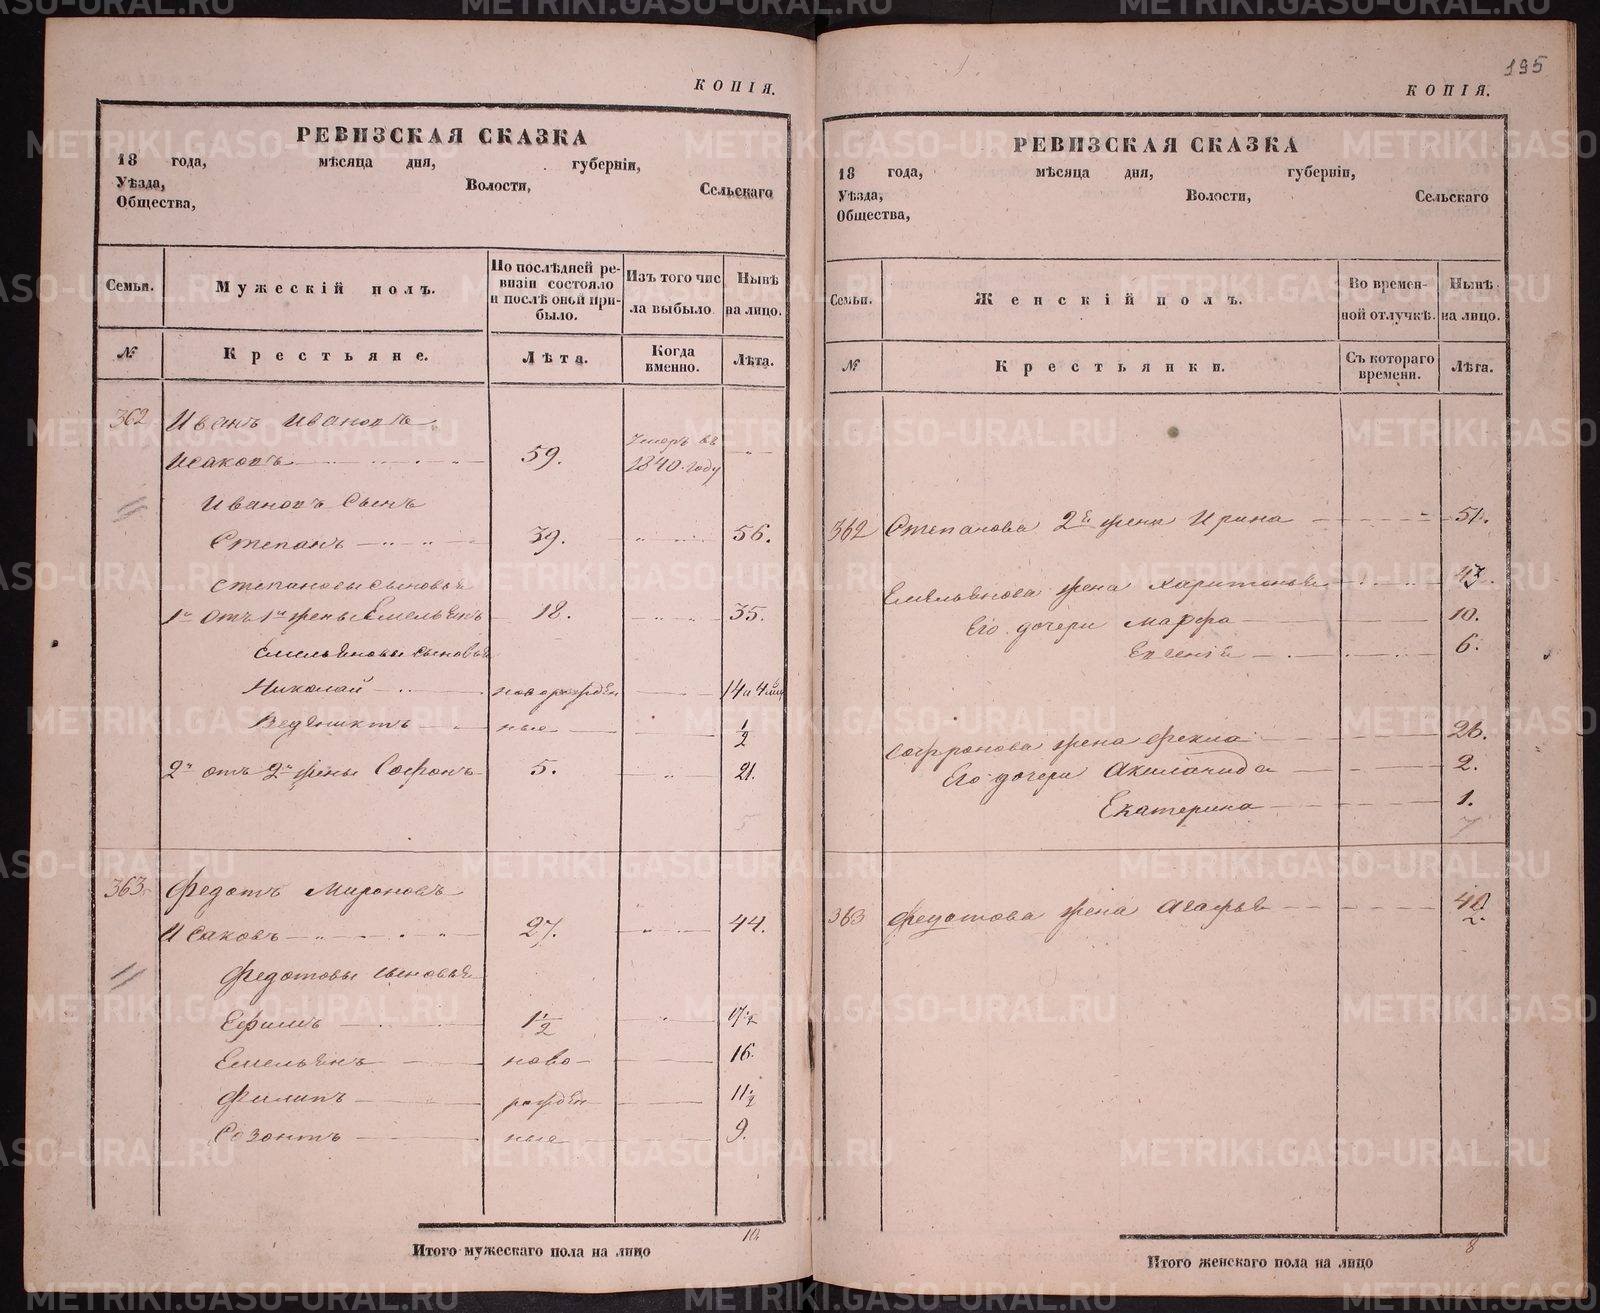 КОПІЯ.
РЕВИЗСКАЯ СКАЗКА
18 года, мѣсяца дня, губерніи,
Уѣзда, Волости, Сельскаго
Общества,
Семьи. Мужескій полъ. По послѣдней ревизіи состояло и послѣ оной прибыло. Изъ того числа выбыло Нынѣ на лицо.
№ Крестьяне. Лѣта. Когда именно. Лѣта.
362 Иванъ Ивановъ
Исаковъ 59. Умеръ въ 1840. году
Ивановъ Сынъ
Степанъ 39. 56.
Степановы сыновья
1й отъ 1й жены Емельянъ 18. 35.
Емельяновы сыновья
Николай новорожден 14 и 4 мѣс
Ведениктъ ные 1/2
2й отъ 2й жены Софронъ 5. 21.
5
363 Федотъ Мироновъ
Исаковъ 27. 44.
Федотовы сыновья
Ефимъ 1 1/2
Емельянъ ново 16.
Филипъ рожден 11 1/2
Созонтъ ные 9.
Итого мужескаго пола на лицо 10
195
КОПІЯ.
РЕВИЗСКАЯ СКАЗКА
18 года, мѣсяца дня, губерніи,
Уѣзда, Волости, Сельскаго
Общества,
Семьи. Женскій полъ. Во временной отлучкѣ. Нынѣ на лицо.
№ Крестьянки. Съ котораго времени. Лѣта.
362 Степанова 2я жена Ирина 51.
Емельянова жена Харитонья 43.
Его дочери Марфа 10.
Евгенія 6.
Софронова жена Фекла 26.
Его дочери Акилинида 2.
Екатерина 1.
7
363 Федотова жена Агафья
Итого женскаго пола на лицо 8
METRIKI.GASO-URAL.RU